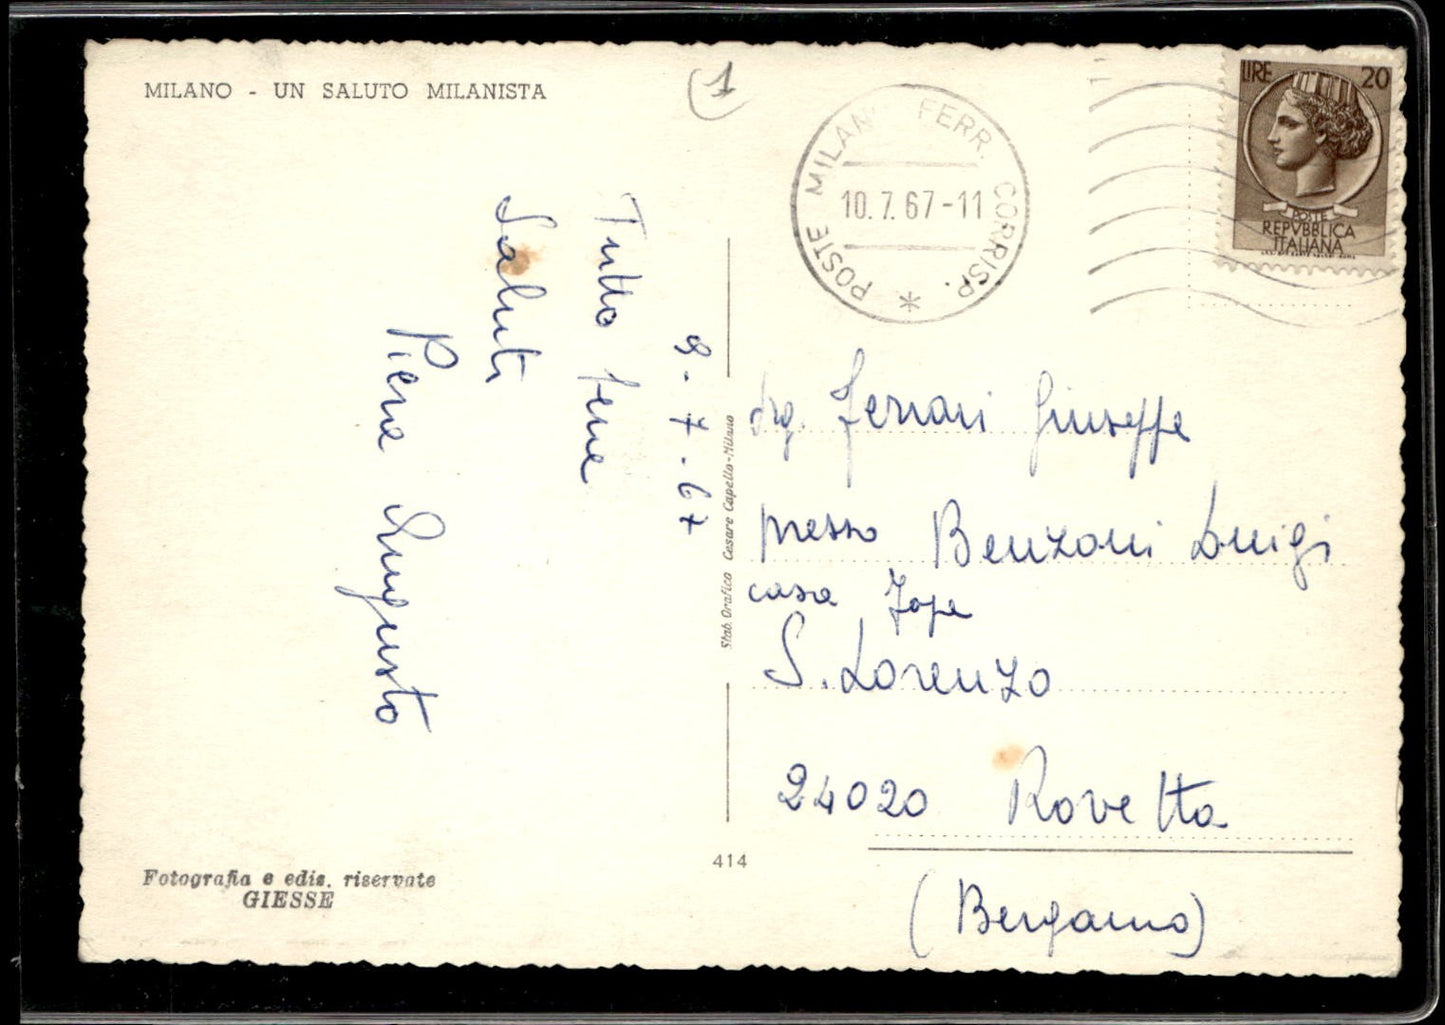 MILANO - UN SALUTO MILANISTA
1
POSTE MILANO FERR. CORRISP. *
10.7.67-11
LIRE 20
POSTE
REPVBBLICA
ITALIANA
9-7-67
Tutto bene
Saluti
Piera Augusto
Stab. Grafico Cesare Capello-Milano
Sig. Ferrari Giuseppe
presso Benzoni Luigi
casa
S. Lorenzo
24020 Rovetta
(Bergamo)
414
Fotografia e ediz. riservate
GIESSE